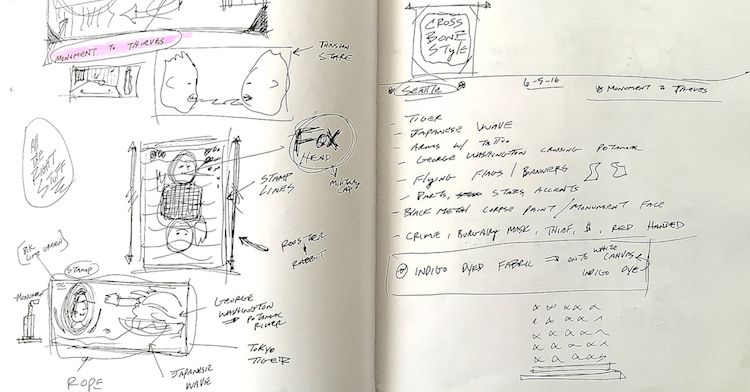 MONUMENT TO THIEVES
TENSION
STARE
FOX
HEAD
MILITARY
CAP
STAMP
LINES
ROOSTER
RABBIT
LIME GREEN
STAMP
MONUMENT
GEORGE
WASHINGTON
POTOMAC
RIVER
TOKYO
TIGER
JAPANESE
WAVE
ROPE
CROSS
BONE
STYLE
SEATTLE
6-5-16
MONUMENT TO THIEVES
- TIGER
- JAPANESE WAVE
- ARMS W/ TATTOO
- GEORGE WASHINGTON CROSSING POTOMAC
- FLYING FLAGS / BANNERS
- STARS, ACCENTS
- BLACK METAL CORPSE PAINT / MONUMENT FACE
- CRIME, BURGLARY MASK, THIEF, $, RED HANDED
INDIGO DYED FABRIC ⇒ ONTO WHITE CANVAS
INDIGO DYE